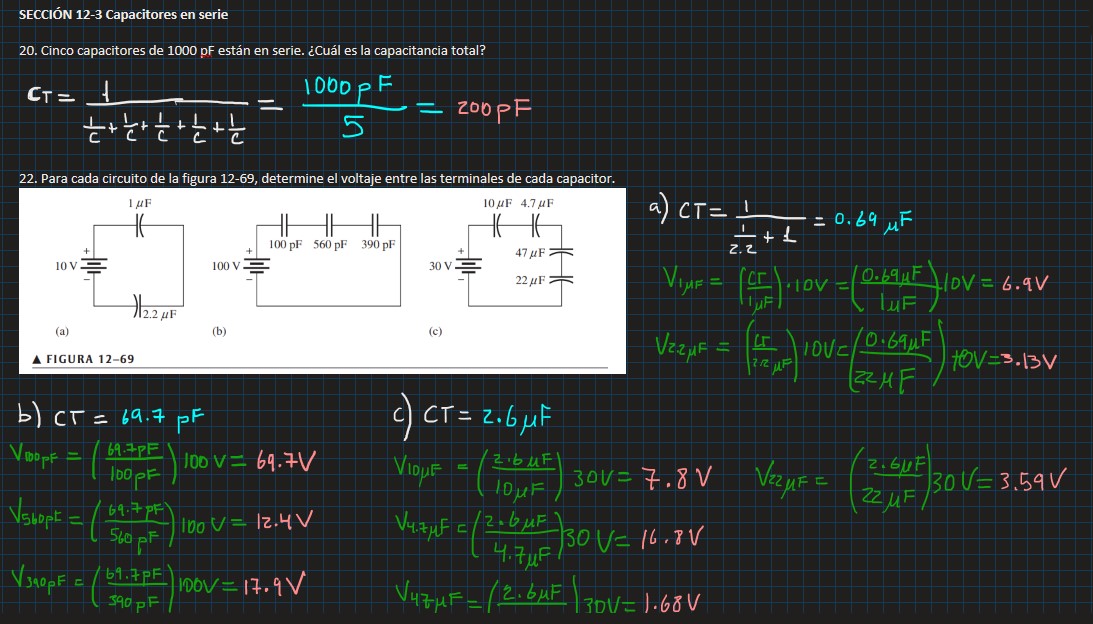 SECCIÓN 12-3 Capacitores en serie
20. Cinco capacitores de 1000 pF están en serie. ¿Cuál es la capacitancia total?
CT = 1 / (1/C + 1/C + 1/C + 1/C + 1/C) = 1000 pF / 5 = 200 pF
22. Para cada circuito de la figura 12-69, determine el voltaje entre las terminales de cada capacitor.
1 μF
10 V
+
−
2.2 μF
(a)
100 pF 560 pF 390 pF
100 V
+
−
(b)
10 μF 4.7 μF
47 μF
30 V
+
−
22 μF
(c)
▲ FIGURA 12–69
a) CT = 1 / (1/2.2 + 1) = 0.69 μF
V1μF = (CT / 1μF) · 10V = (0.69μF / 1μF) · 10V = 6.9V
V2.2μF = (CT / 2.2 μF) 10V = (0.69μF / 22μF) 10V = 3.13V
b) CT = 69.7 pF
V100pF = (69.7pF / 100pF) 100V = 69.7V
V560pF = (69.7pF / 560pF) 100V = 12.4V
V390pF = (69.7pF / 390pF) 100V = 17.9V
c) CT = 2.6μF
V10μF = (2.6μF / 10μF) 30V = 7.8V
V4.7μF = (2.6μF / 4.7μF) 30V = 16.8V
V47μF = (2.6μF) 30V = 1.68V
V22μF = (2.6μF / 22μF) 30V = 3.59V